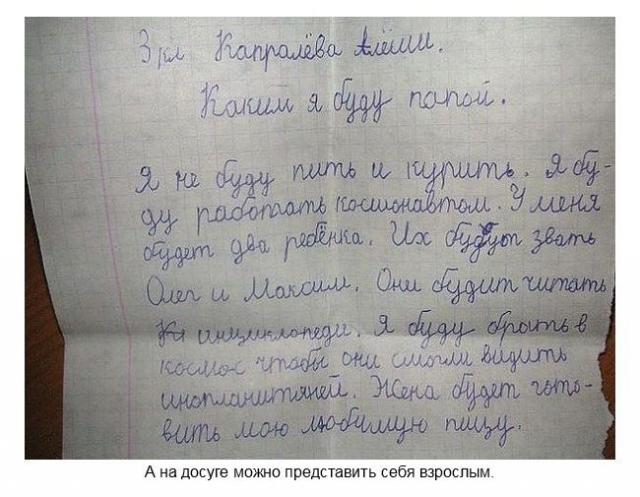 3 кл Капралёва Алёши.
Каким я буду папой.
Я не буду пить и курить. Я бу-
ду работать космонавтом. У меня
будет два ребёнка. Их будут звать
Олег и Максим. Они будит читать
инциклопеди. Я буду брыть в
космос чтобы они смогли видить
инопланитяней. Жена будет гото-
вить мою любимую пицу.
А на досуге можно представить себя взрослым.